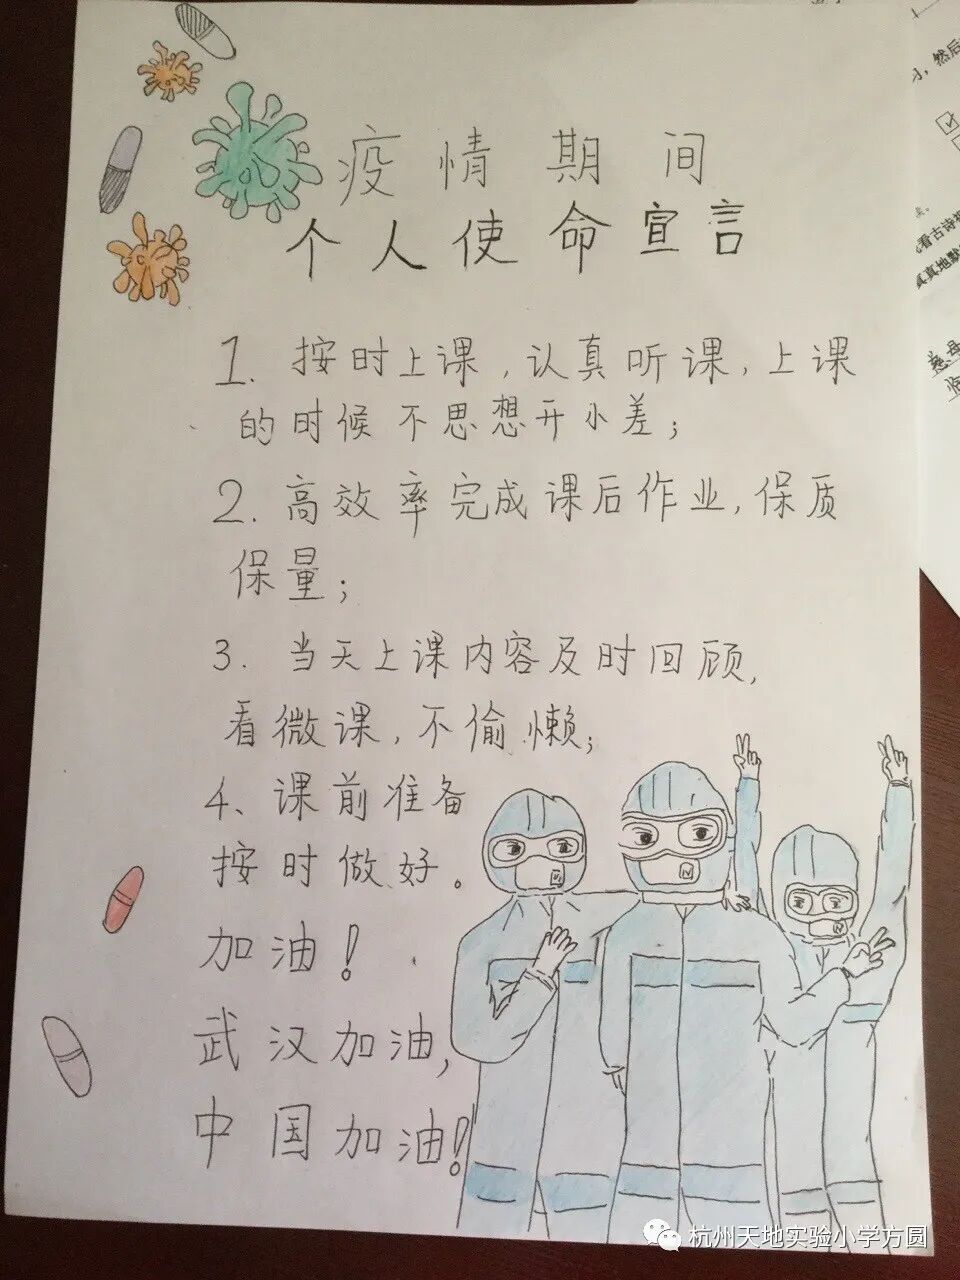 疫情期间
个人使命宣言
1. 按时上课,认真听课,上课
的时候不思想开小差;
2. 高效率完成课后作业,保质
保量;
3. 当天上课内容及时回顾,
看微课,不偷懒;
4、课前准备
按时做好。
加油!
武汉加油,
中国加油!
习，然后
看古诗视
真真地默
杭州天地实验小学方圆